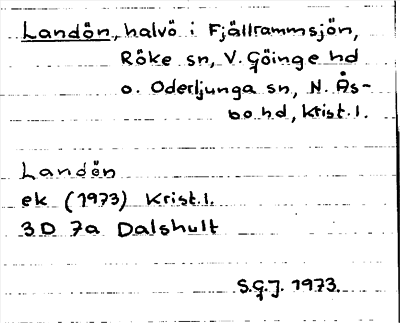 Landön, halvö i Fjällrammsjön,
Röke sn, V. Göinge hd
o. Oderljunga sn, N. Ås-
bo hd, Krist. l.
Landön
ek (1973) Krist. l.
3D 7a Dalshult
S.G.J. 1973.